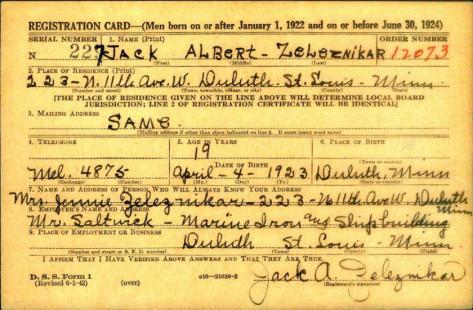 REGISTRATION CARD—(Men born on or after January 1, 1922 and on or before June 30, 1924)
SERIAL NUMBER 1. NAME (Print) ORDER NUMBER
N 227 JACK ALBERT - ZELEZNIKAR 12073
(First) (Middle) (Last)
2. PLACE OF RESIDENCE (Print)
223 - N. 11th Ave. W. Duluth St. Louis - Minn
(Number and street) (Town, township, village, or city) (County) (State)
[THE PLACE OF RESIDENCE GIVEN ON THE LINE ABOVE WILL DETERMINE LOCAL BOARD
JURISDICTION; LINE 2 OF REGISTRATION CERTIFICATE WILL BE IDENTICAL]
3. MAILING ADDRESS
SAME
(Mailing address if other than place indicated on line 2. If same insert word same)
4. TELEPHONE 5. AGE IN YEARS 6. PLACE OF BIRTH
19
DATE OF BIRTH (Town or county)
Mel. 4875 April - 4 - 1923 Duluth, Minn
(Exchange) (Number) (Mo.) (Day) (Yr.) (State or country)
7. NAME AND ADDRESS OF PERSON WHO WILL ALWAYS KNOW YOUR ADDRESS
Mrs. Jennie Zeleznikar - 223 - N 11th Ave W. Duluth Minn
8. EMPLOYER'S NAME AND ADDRESS
Mr. Saltwick - Marine Iron and Shipbuilding
9. PLACE OF EMPLOYMENT OR BUSINESS
Duluth St. Louis - Minn
(Number and street or R. F. D. number) (Town) (County) (State)
I AFFIRM THAT I HAVE VERIFIED ABOVE ANSWERS AND THAT THEY ARE TRUE.
D. S. S. Form 1
(Revised 6-1-42) (over) 16—21630-2 Jack A. Zeleznikar
(Registrant's signature)